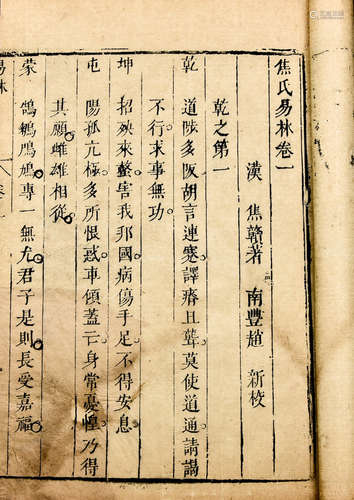 焦氏易林卷一
漢 焦贛著 南豐趙 新校
乾之第一
乾 道陟多阪胡言連蹇譯瘖且聾莫使道通請謁
不行求事無功
坤 招殃來螫害我邦國病傷手足不得安息
屯 陽孤亢極多所恨惑車傾蓋亡身常憂惶乃得
其願雌雄相從
蒙 鵠鵴鳲鳩專一無尤君子是則長受嘉福
易林